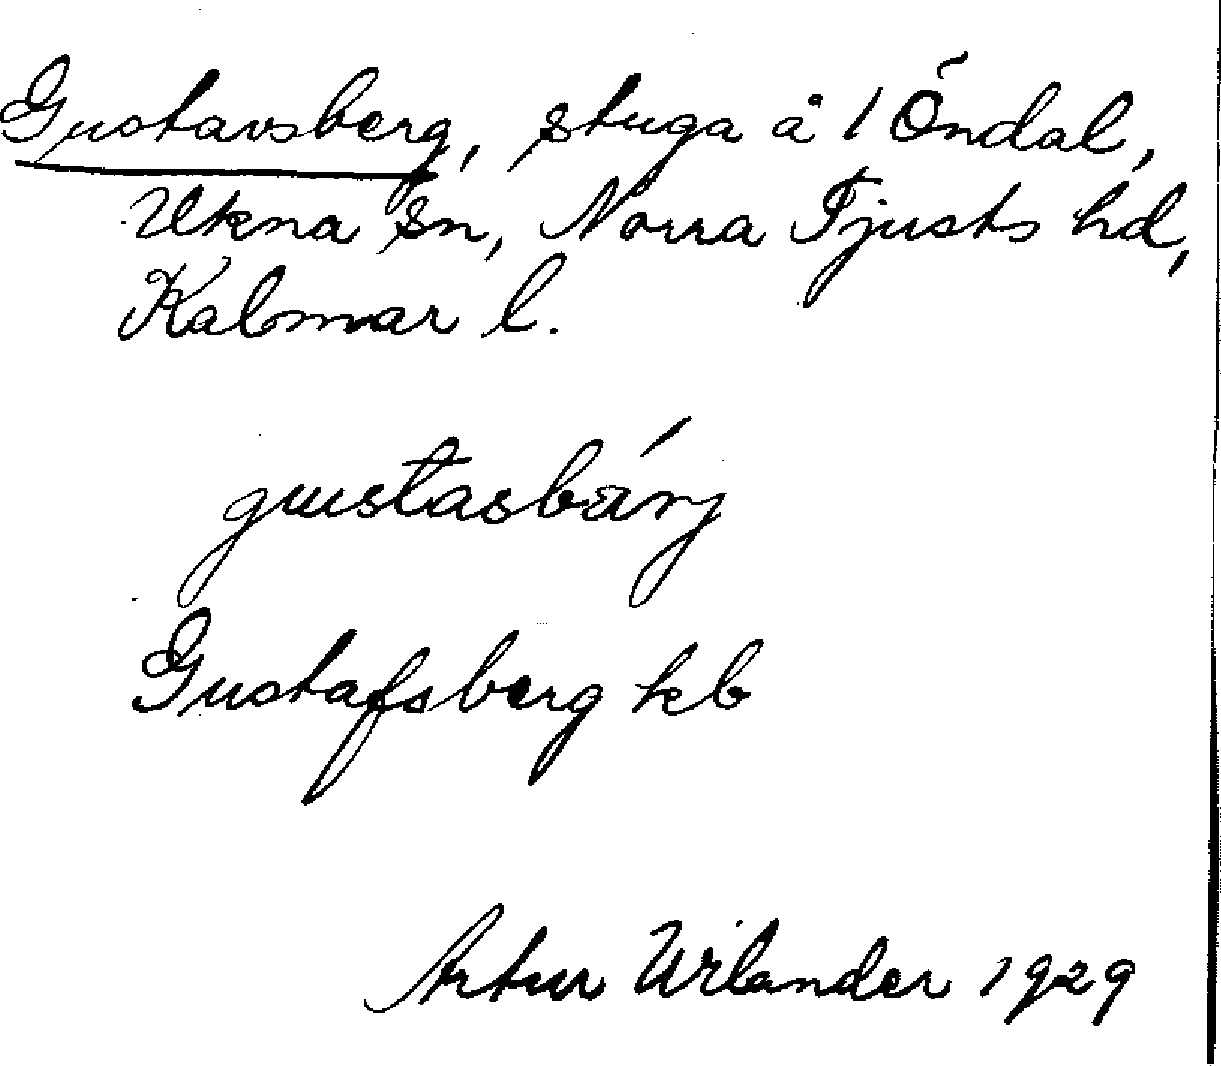 Gustavsberg, stuga å 1 Öndal,
Ukna sn, Norra Tjusts hd,
Kalmar l.
gustasbärj
Gustafsberg kb
Artur Wilander 1929